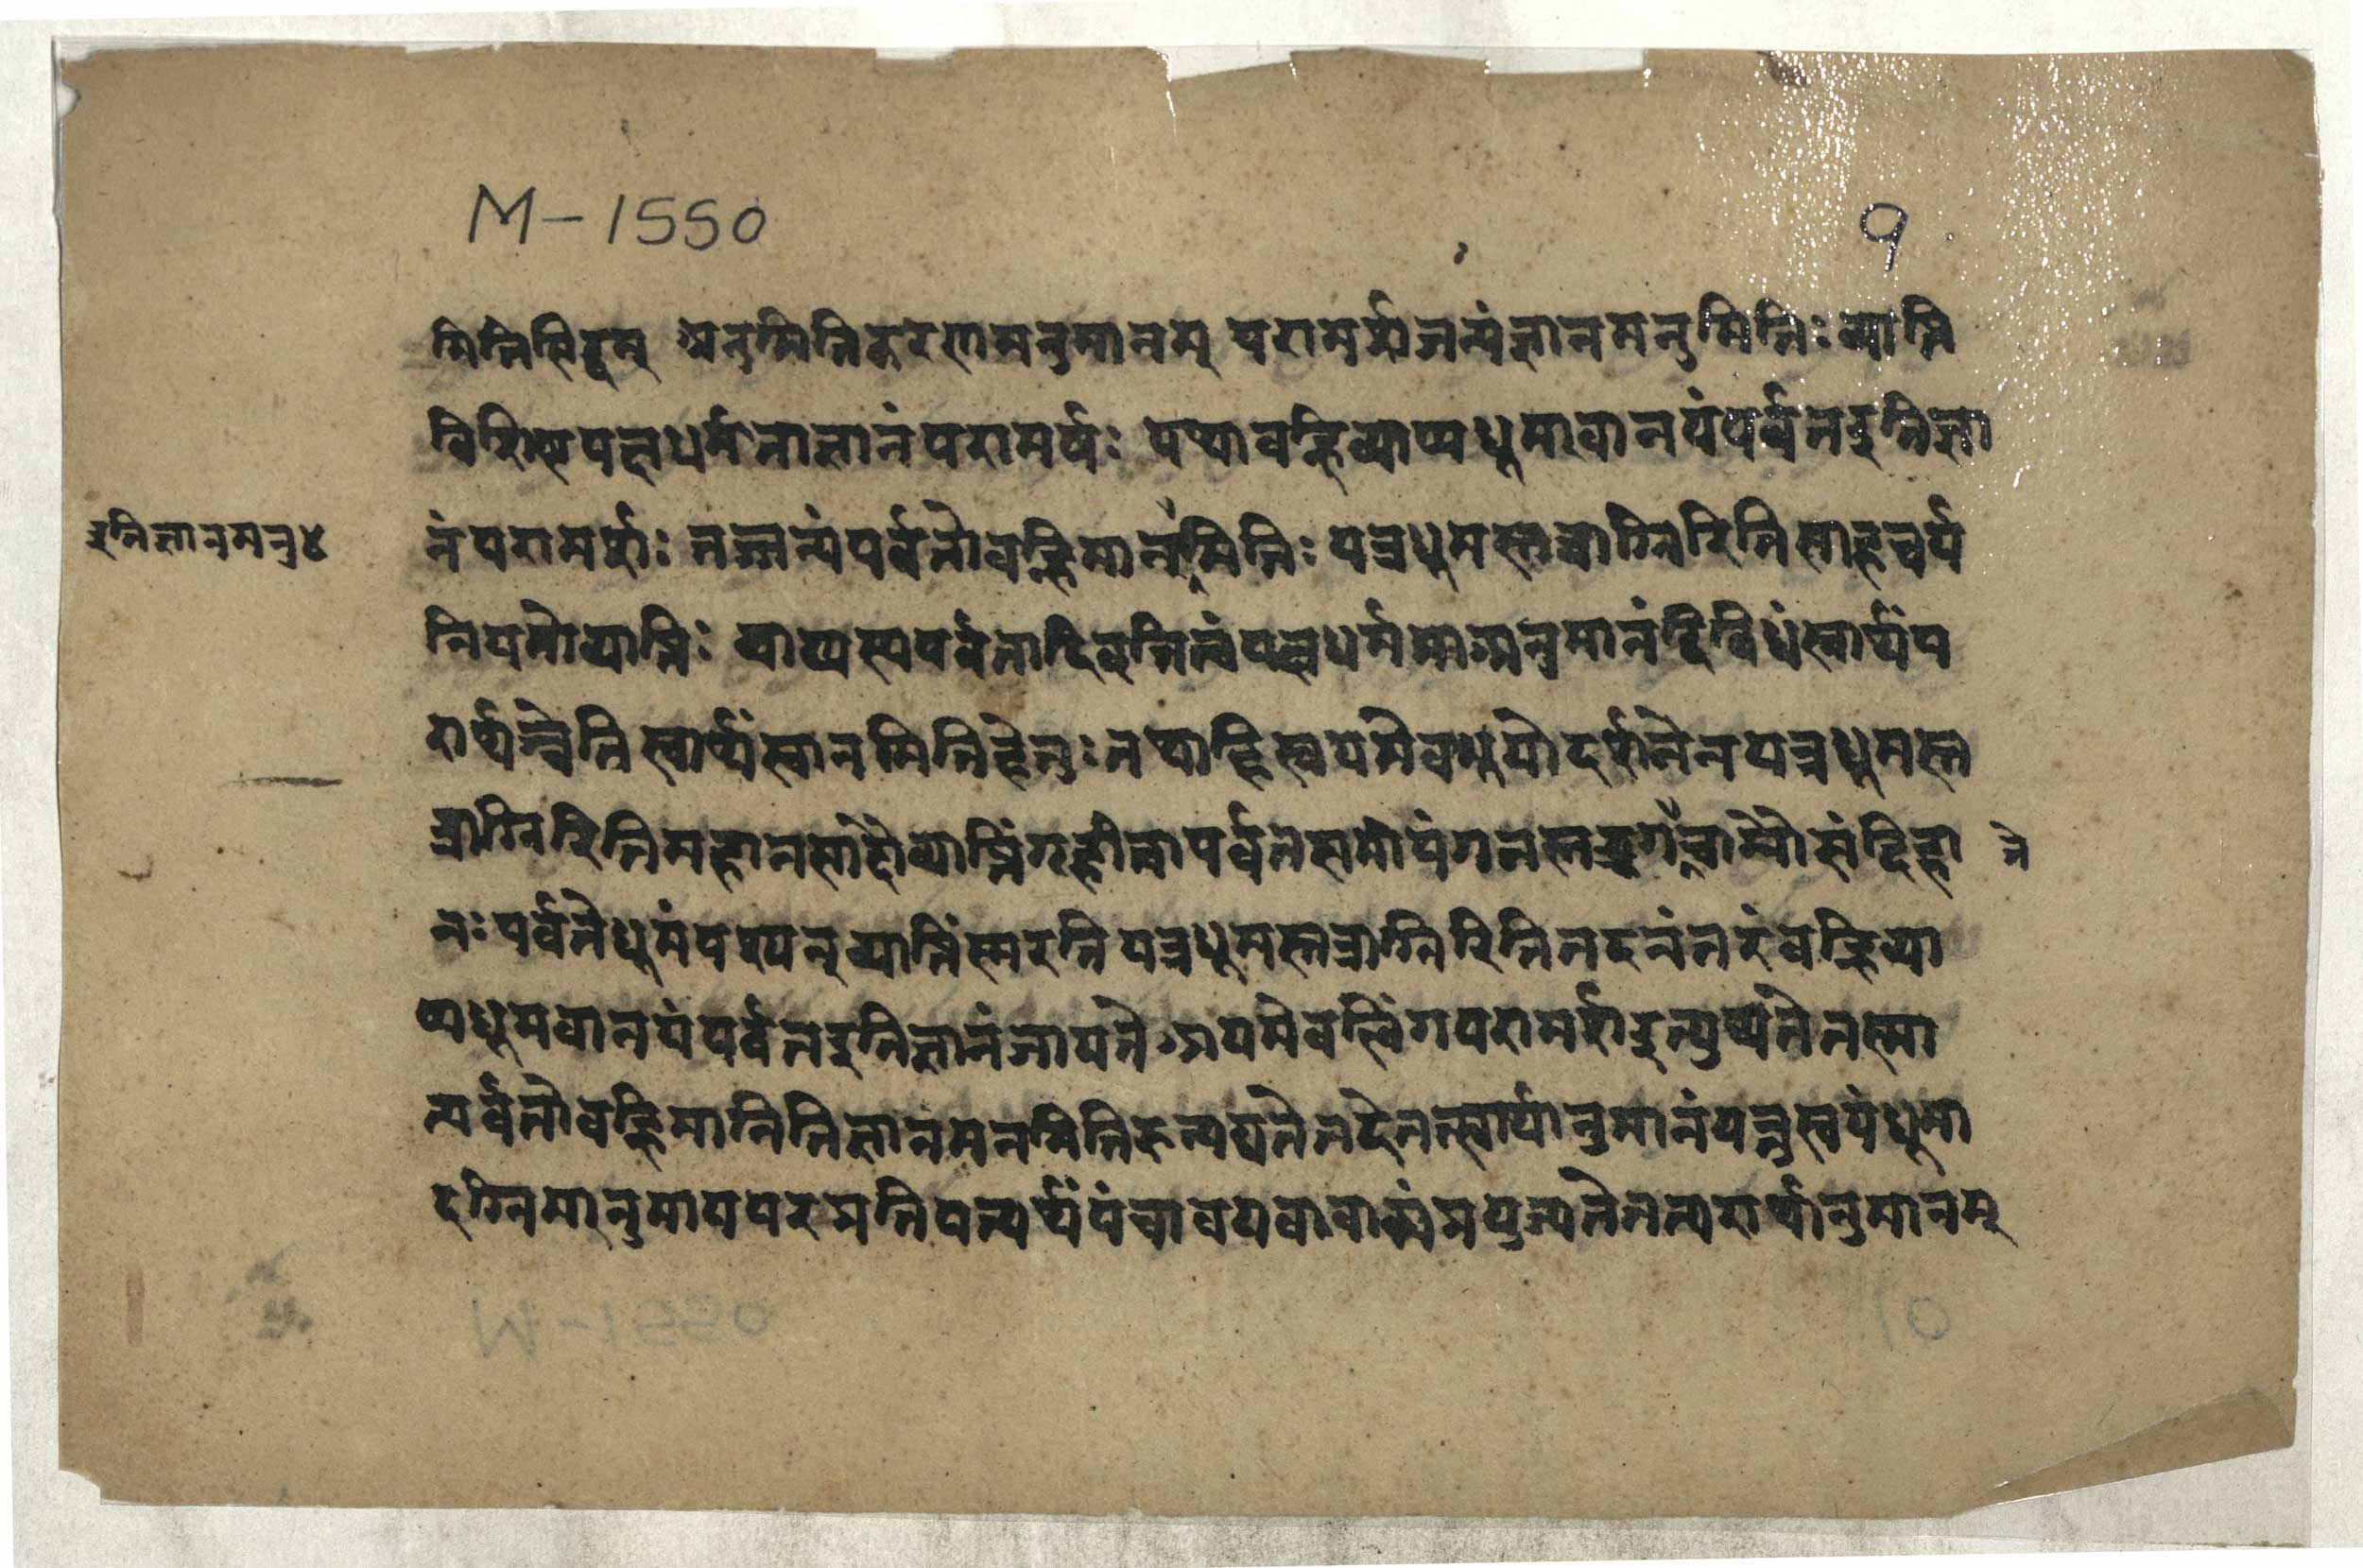 M-1550
१
मितिसिद्धम् अनुमितिकरणमनुमानम् परामर्शजन्यंज्ञानमनुमितिः व्याप्ति
विशिष्टपक्षधर्मताज्ञानंपरामर्षः यथावह्निव्याप्यधूमावानयंपर्वतइतिज्ञा
इतिज्ञानमनु४
नंपरामर्शः तज्जन्यंपर्वतोवह्निमान्मितिः यत्रधूमस्तत्राग्निरितिसाहचर्य
नियमोव्याप्तिः व्याप्यस्यपर्वतादिवृत्तित्वंपक्षधर्मताअनुमानंद्विविधंस्वार्थंप
रार्थञ्चेतिस्वार्थंस्वानमितिहेतुःतथाहिस्वयमेवभूयोदर्शनेनयत्रधूमस्त
त्राग्निरितिमहानसादौव्याप्तिंगृहीत्वापर्वतसमीपंगतस्तद्गचाग्नौसंदिहा
ने
नःपर्वतेधूमंपश्यन्व्याप्तिंस्मरतियत्रधूमस्तत्राग्निरितितदनंतरंवह्निव्या
प्यधूमवानयंपर्वतइतिज्ञानंजायतेअयमेवलिंगपरामर्शइत्युच्यतेतस्मा
त्पर्वतोवह्निमानितिज्ञानमनमितिरुत्पद्यतेतदेतत्स्वार्थानुमानंयत्तुस्वयंधूमा
दग्निमानुमायपरप्रतिपत्यर्थंपंचावयवावाक्यंप्रयुज्यतेतत्परार्थानुमानम्